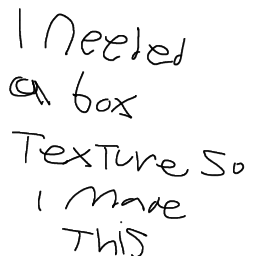 I needed
a box
Texture so
I made
This